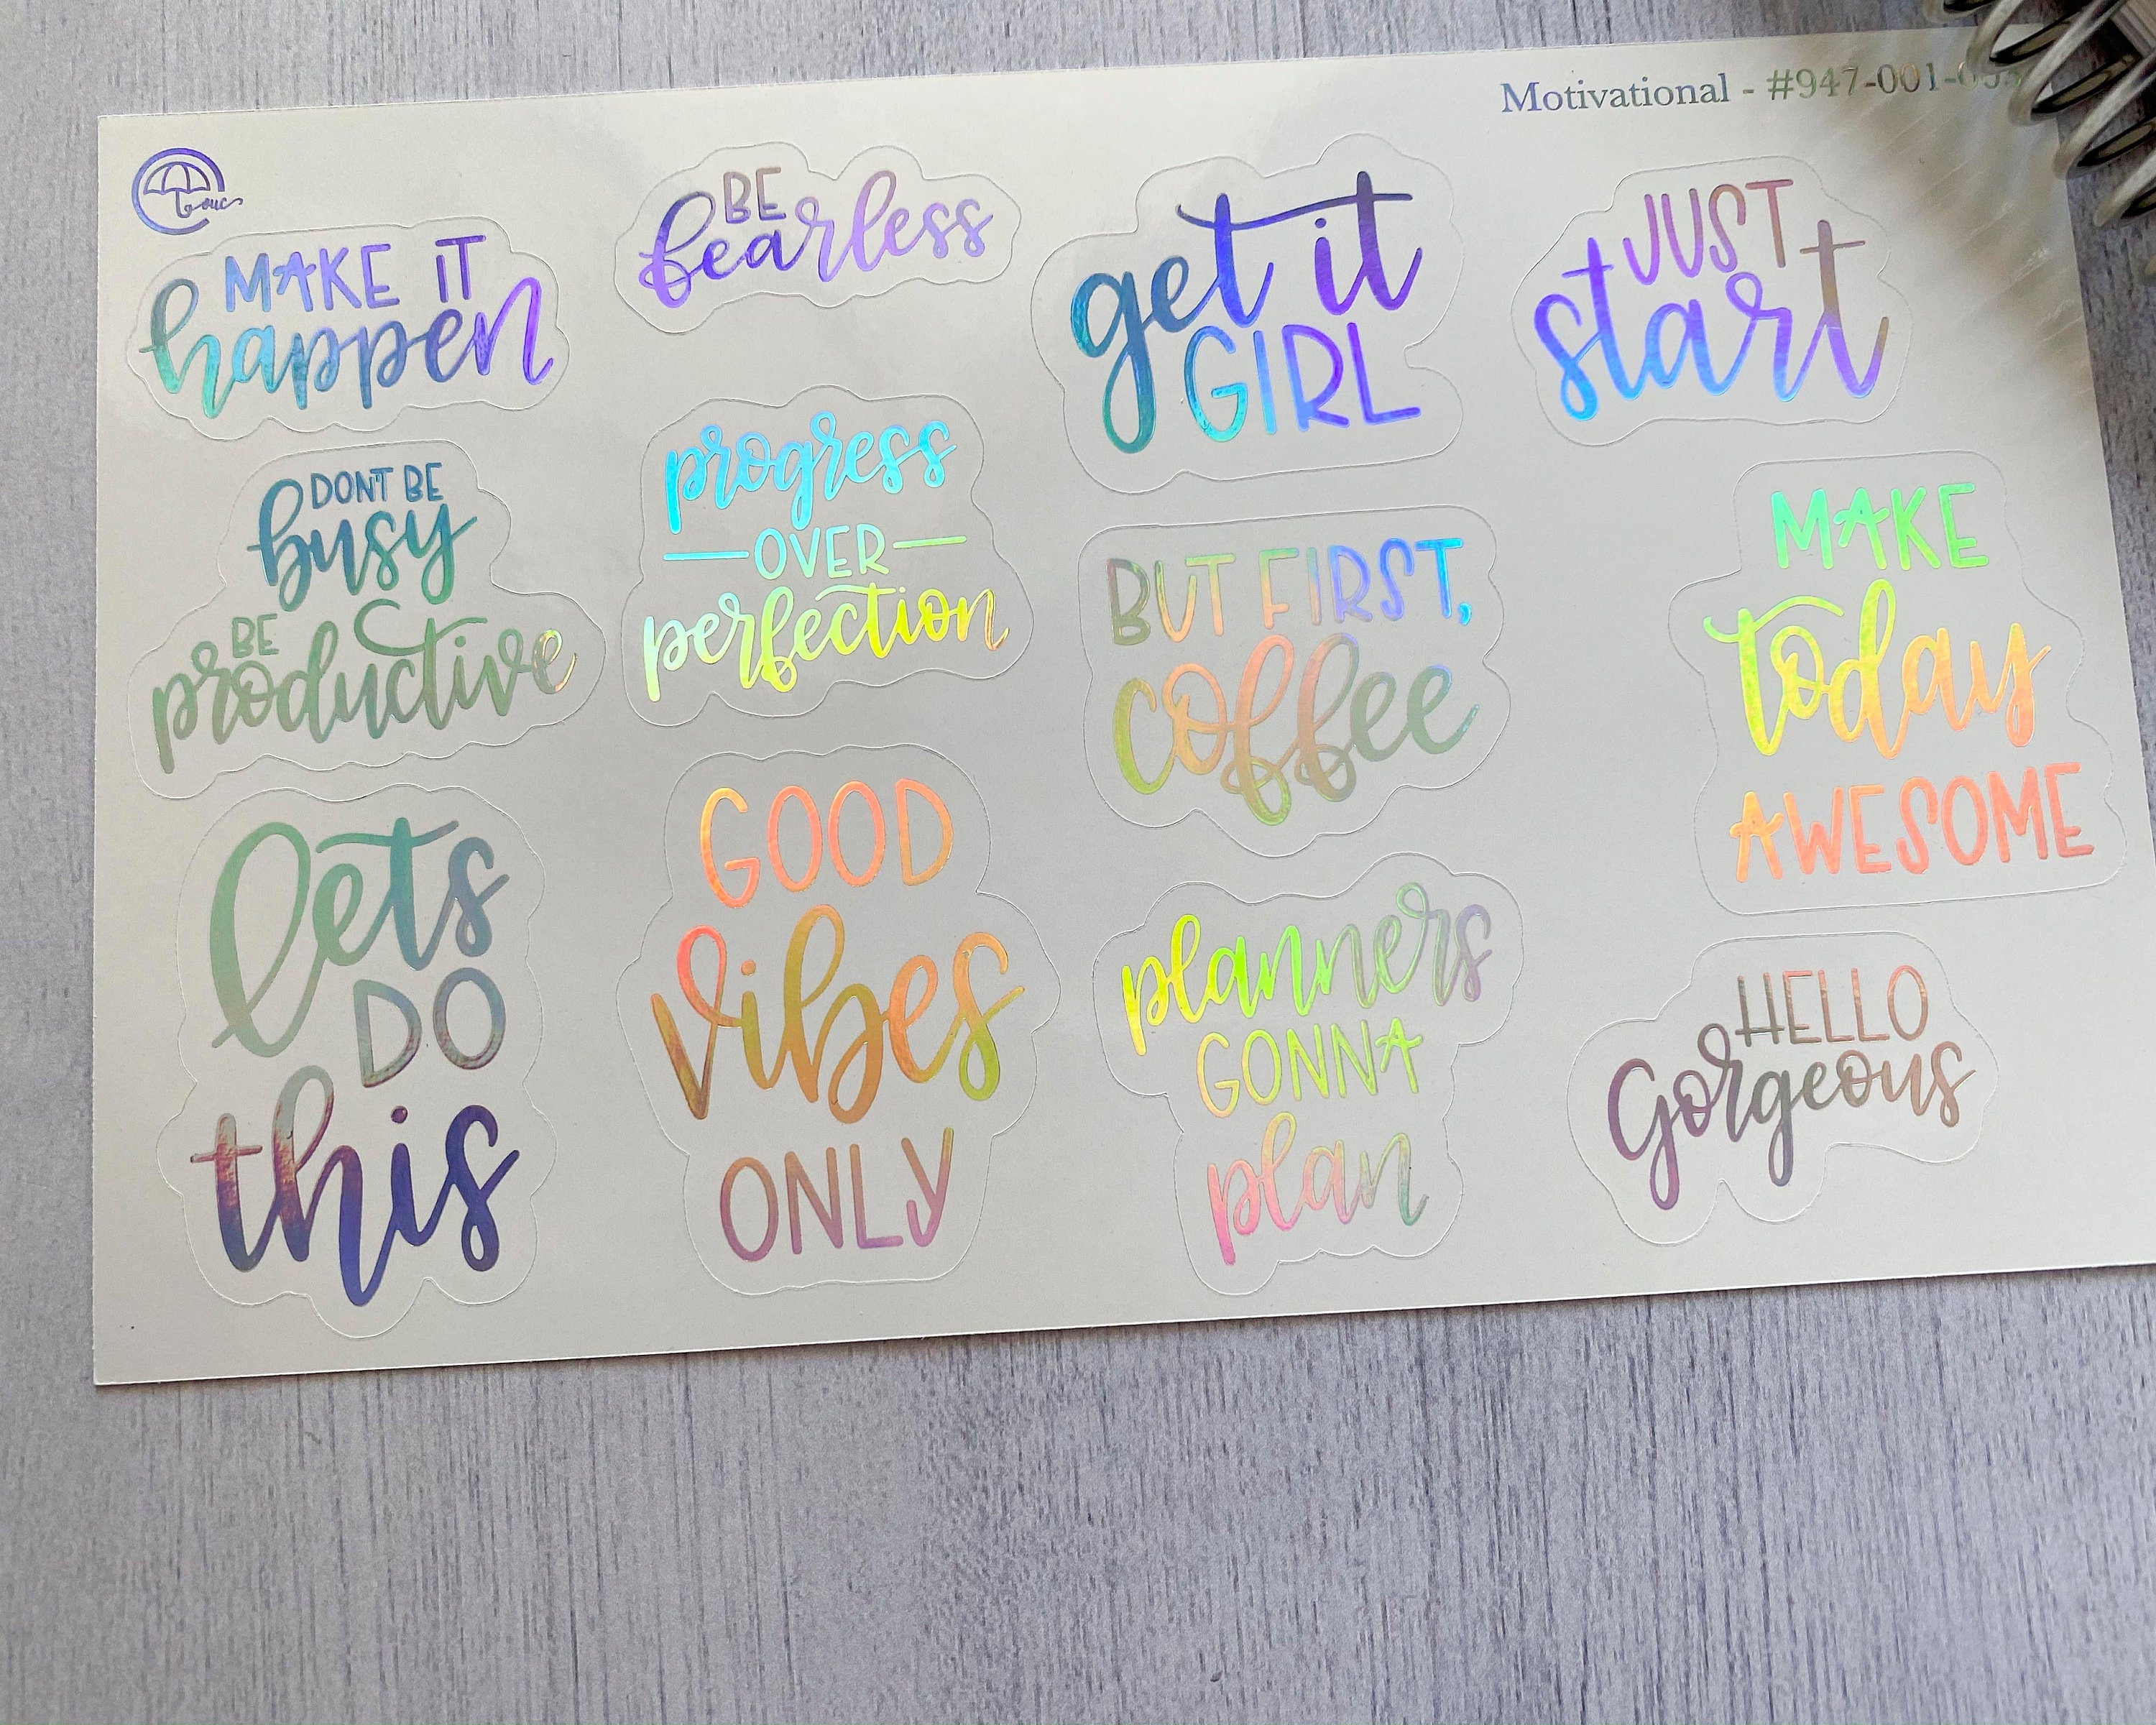 Motivational - #947-001-
MAKE IT
happen
BE
fearless
get it
GIRL
JUST
start
DON'T BE
busy
BE
productive
progress
OVER
perfection
BUT FIRST,
coffee
MAKE
today
AWESOME
lets
DO
this
GOOD
vibes
ONLY
planners
GONNA
plan
HELLO
Gorgeous